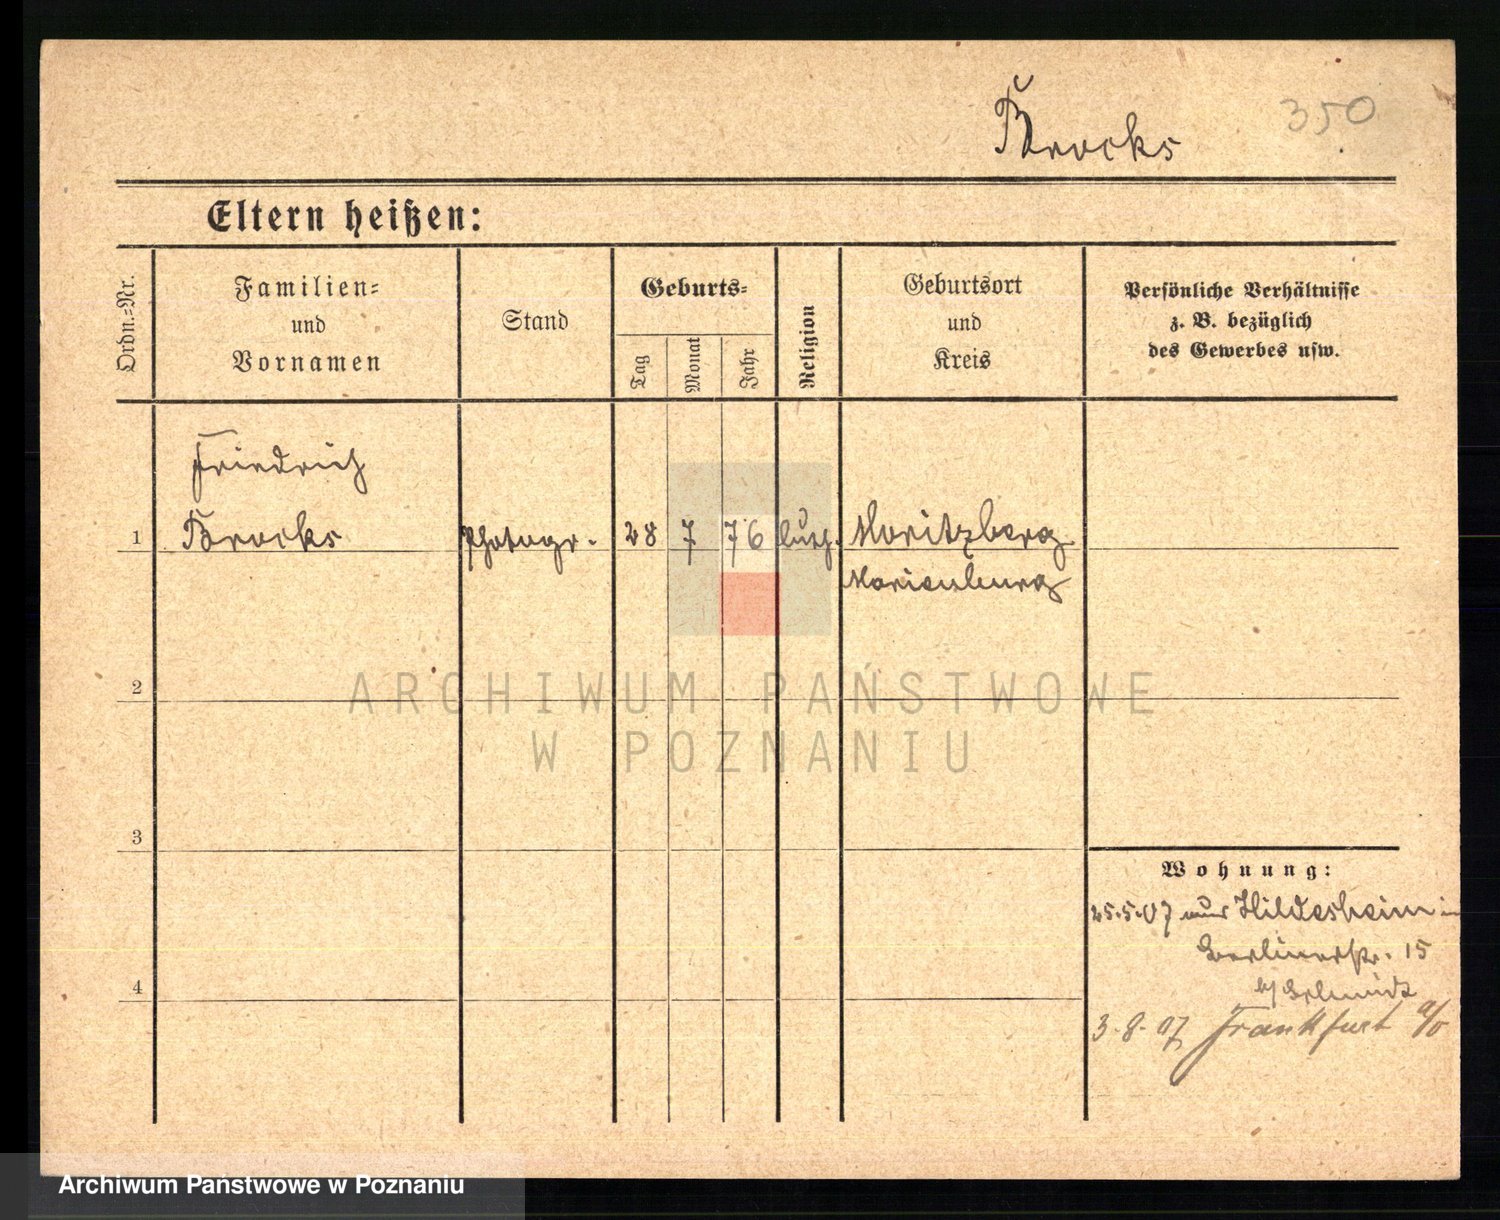 Brocks
350
Eltern heißen:
Ordn.-Nr.
Familien-
und
Vornamen
Stand
Geburts-
Tag
Monat
Jahr
Religion
Geburtsort
und
Kreis
Persönliche Verhältnisse
z. B. bezüglich
des Gewerbes usw.
Friedrich
1 Brocks Photogr. 28 7 76 luth. Moritzberg
Marienburg
2
ARCHIWUM PAŃSTWOWE
W POZNANIU
3
Wohnung:
25.5.07 aus Hildesheim in
Berlinerstr. 15
b/ Schmidt
4
3.8.07 Frankfurt a/o
Archiwum Państwowe w Poznaniu